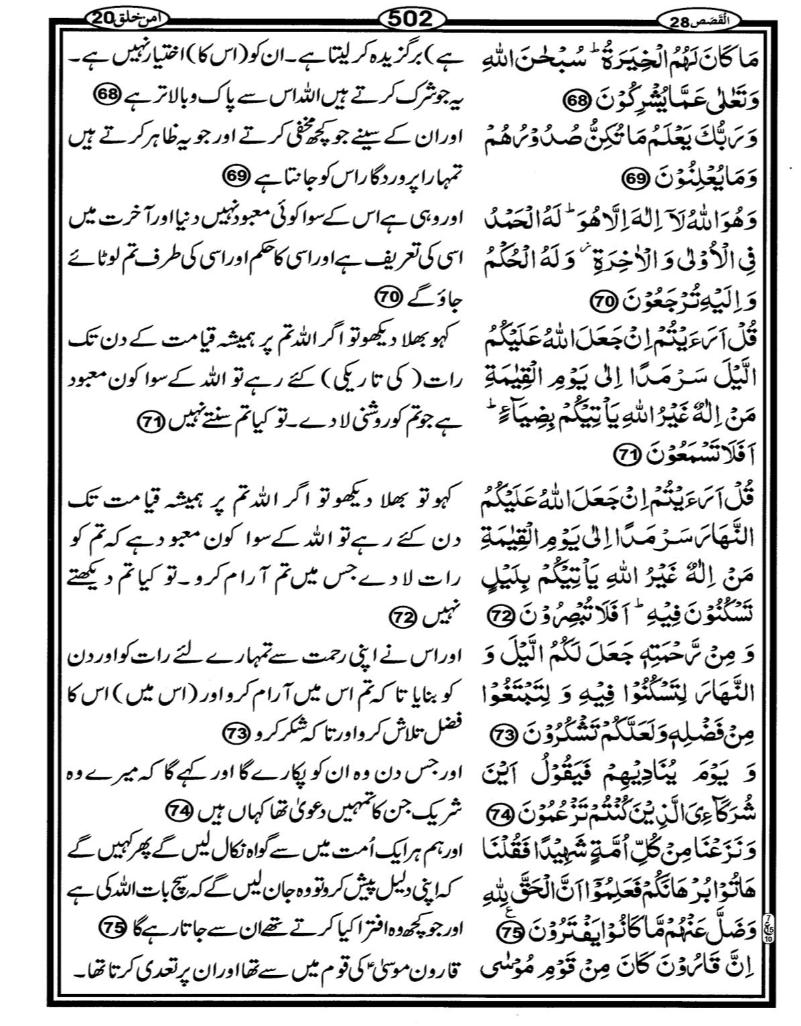 القصص 28
502
امن خلق 20
مَا كَانَ لَهُمُ الْخِيَرَةُ ؕ سُبْحٰنَ اللّٰهِ
وَتَعٰلٰى عَمَّا يُشْرِكُوْنَ 68
وَرَبُّكَ يَعْلَمُ مَا تُكِنُّ صُدُوْرُهُمْ
وَمَا يُعْلِنُوْنَ 69
وَهُوَ اللّٰهُ لَاۤ اِلٰهَ اِلَّا هُوَ ؕ لَهُ الْحَمْدُ
فِى الْاُوْلٰى وَ الْاٰخِرَةِ ؗ وَلَهُ الْحُكْمُ
وَ اِلَيْهِ تُرْجَعُوْنَ 70
قُلْ اَرَءَيْتُمْ اِنْ جَعَلَ اللّٰهُ عَلَيْكُمُ
الَّيْلَ سَرْمَدًا اِلٰى يَوْمِ الْقِيٰمَةِ
مَنْ اِلٰهٌ غَيْرُ اللّٰهِ يَاْتِيْكُمْ بِضِيَآءٍ ؕ
اَفَلَا تَسْمَعُوْنَ 71
قُلْ اَرَءَيْتُمْ اِنْ جَعَلَ اللّٰهُ عَلَيْكُمُ
النَّهَارَ سَرْمَدًا اِلٰى يَوْمِ الْقِيٰمَةِ
مَنْ اِلٰهٌ غَيْرُ اللّٰهِ يَاْتِيْكُمْ بِلَيْلٍ
تَسْكُنُوْنَ فِيْهِ ؕ اَفَلَا تُبْصِرُوْنَ 72
وَ مِنْ رَّحْمَتِهٖ جَعَلَ لَكُمُ الَّيْلَ وَ
النَّهَارَ لِتَسْكُنُوْا فِيْهِ وَ لِتَبْتَغُوْا
مِنْ فَضْلِهٖ وَلَعَلَّكُمْ تَشْكُرُوْنَ 73
وَ يَوْمَ يُنَادِيْهِمْ فَيَقُوْلُ اَيْنَ
شُرَكَآءِىَ الَّذِيْنَ كُنْتُمْ تَزْعُمُوْنَ 74
وَنَزَعْنَا مِنْ كُلِّ اُمَّةٍ شَهِيْدًا فَقُلْنَا
هَاتُوْا بُرْهَانَكُمْ فَعَلِمُوْۤا اَنَّ الْحَقَّ لِلّٰهِ
وَضَلَّ عَنْهُمْ مَّا كَانُوْا يَفْتَرُوْنَ 75
اِنَّ قَارُوْنَ كَانَ مِنْ قَوْمِ مُوْسٰى
ہے) برگزیدہ کر لیتا ہے۔ ان کو (اس کا) اختیار نہیں ہے۔
یہ جو شرک کرتے ہیں اللہ اس سے پاک و بالاتر ہے 68
اور ان کے سینے جو کچھ مخفی کرتے اور جو یہ ظاہر کرتے ہیں
تمہارا پروردگار اس کو جانتا ہے 69
اور وہی ہے اس کے سوا کوئی معبود نہیں دنیا اور آخرت میں
اسی کی تعریف ہے اور اسی کا حکم اور اسی کی طرف تم لوٹائے
جاؤ گے 70
کہو بھلا دیکھو تو اگر اللہ تم پر ہمیشہ قیامت کے دن تک
رات (کی تاریکی) کئے رہے تو اللہ کے سوا کون معبود
ہے جو تم کو روشنی لا دے۔ تو کیا تم سنتے نہیں 71
کہو تو بھلا دیکھو تو اگر اللہ تم پر ہمیشہ قیامت تک
دن کئے رہے تو اللہ کے سوا کون معبود ہے کہ تم کو
رات لا دے جس میں تم آرام کرو۔ تو کیا تم دیکھتے
نہیں 72
اور اس نے اپنی رحمت سے تمہارے لئے رات کو اور دن
کو بنایا تاکہ تم اس میں آرام کرو اور (اس میں) اس کا
فضل تلاش کرو اور تاکہ شکر کرو 73
اور جس دن وہ ان کو پکارے گا اور کہے گا کہ میرے وہ
شریک جن کا تمہیں دعویٰ تھا کہاں ہیں 74
اور ہم ہر ایک اُمت میں سے گواہ نکال لیں گے پھر کہیں گے
کہ اپنی دلیل پیش کرو تو وہ جان لیں گے کہ سچ بات اللہ کی ہے
اور جو کچھ وہ افترا کیا کرتے تھے ان سے جاتا رہے گا 75
قارون موسیٰؑ کی قوم میں سے تھا اور ان پر تعدی کرتا تھا۔